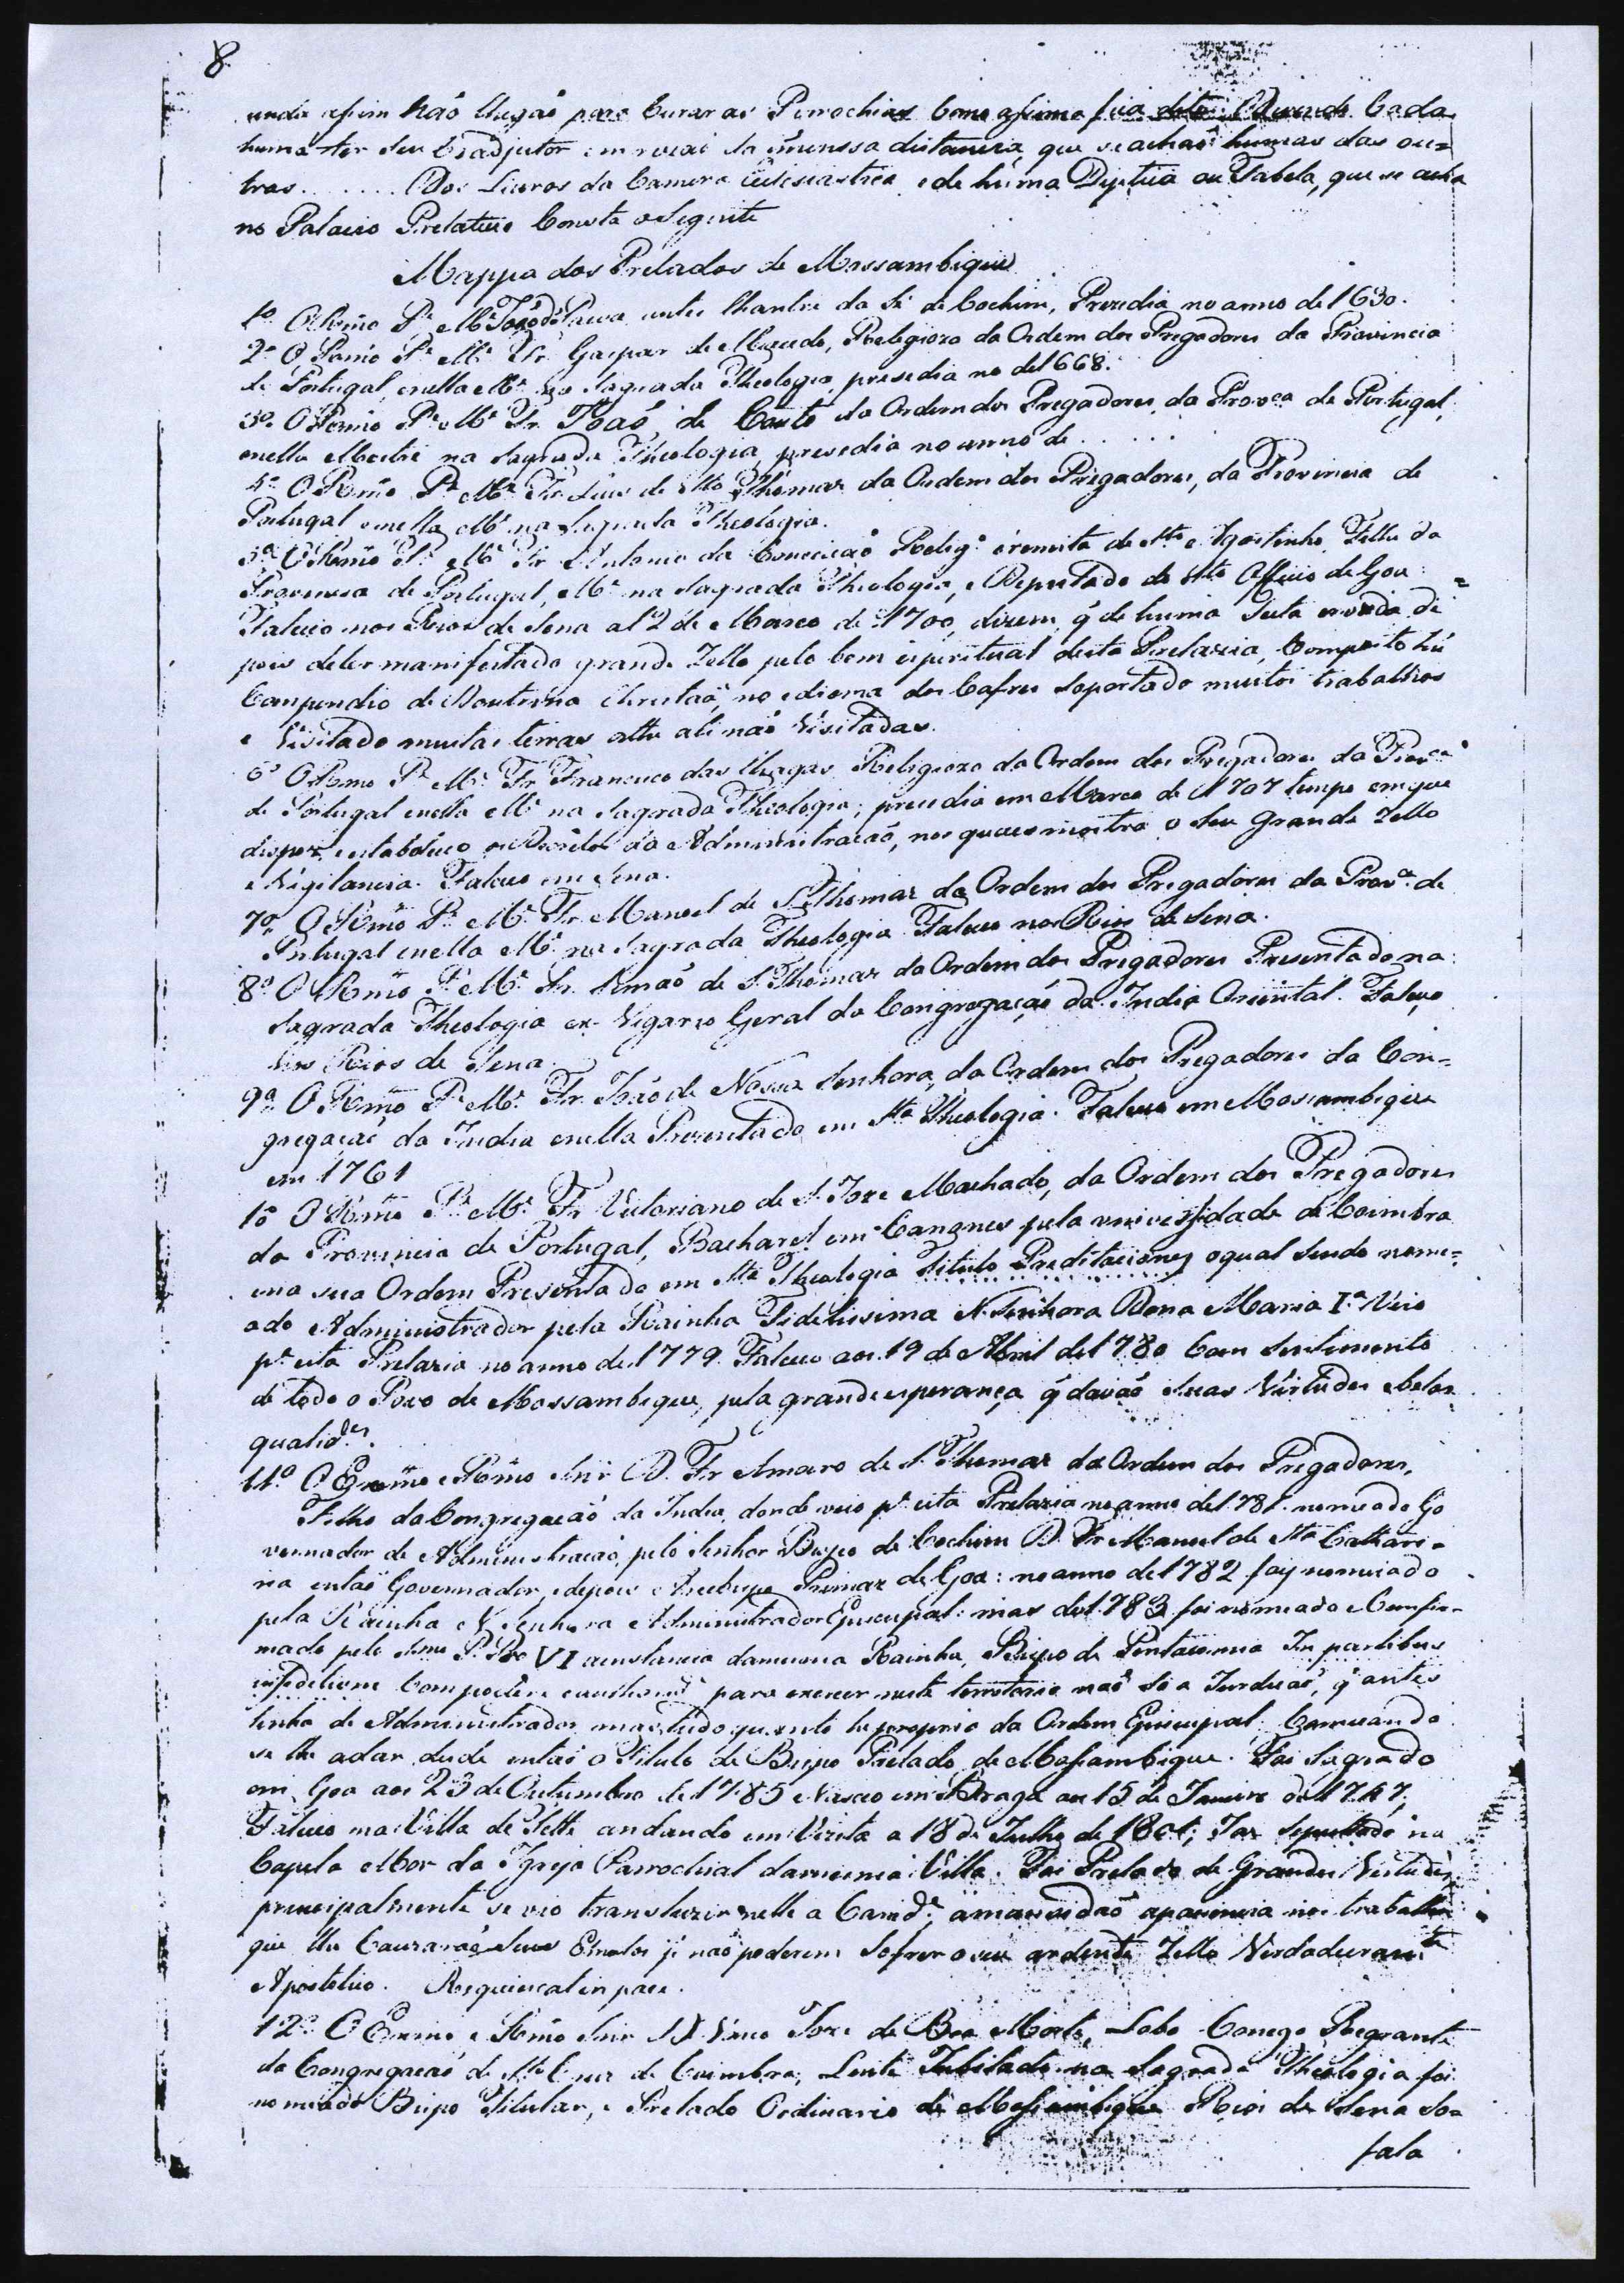 8
ainda assim não chegaõ para Curar as Parrochias Como assima fica dito: Devendo Cada
huma ter seu Coadjutor em rezaõ da imenssa distancia, que se achaõ humas das ou=
tras...... Dos Livros da Camera Ecclesiastica e de huma Dyptica ou Tabela, que se acha
no Palacio Prelaticio Consta o Seguite
Mappa dos Prelados de Mossambique
1º O Rmo Pe Me João de Paiva antes Chantre da Sé de Cochim, Prezedia no anno de 1630.
2º O Rmo Pe Me Fr. Gaspar de Macedo, Relegiozo da Ordem dos Pregadores da Provincia
de Portugal, enella Me na Sagrada Theologia, presedia no de 1668.
3º O Rmo Pe Me Fr. Joaõ de Couto da Ordem dos Pregadores, da Provca de Portugal,
enella Mestre na Sagrada Theologia, presedia no anno de . . . . .
4º O Rmo Pe Me Fr. Luis de Sto Thomas da Ordem dos Pregadores, da Provincia de
Portugal enella Me na Sagrada Theologia.
5º O Rmo Pe Me Fr. Antonio da Conceicaõ Relig.º eremita de Sto Agostinho Filho da
Provincia de Portugal, Me na Sagrada Theologia, e Deputado do Sto Officio de Goa:
Faleceo nos Rios de Sena a 12 de Março de 1700, dizem q̃ de huma Seta ervada di=
pois de ter manifestado grande Zello pelo bem espiritual desta Prelazia, Composto hũ
Compendio de Doutrina Christaã, no edioma dos Cafres soportado muitos trabalhos
e Visitado muitas terras athe ali naõ Visitadas.
6º O Rmo Pe Me Fr. Francisco das Chagas Religiozo da Ordem dos Pregadores da Provca
de Portugal enella Me na Sagrada Theologia; presedia em Março de 1707 tempo em que
dispoz, estableceo os da Administracaõ, nos quaes mostra o seu grande Zello
e Vigilancia. Faleceo em Sena.
7º O Rmo Pe Me Fr. Manoel de S. Thomas da Ordem dos Pregadores da Prova de
Portugal enella Me na Sagrada Theologia. Faleceo nos Rios de Sena.
8º O Rmo Pe Me Fr. Simaõ de S. Thomas da Ordem dos Pregadores Presentado na
Sagrada Theologia ex-Vigario Geral da Congregaçaõ da India Oriental. Faleceo
nos Rios de Sena.
9º O Rmo Pe Me Fr. João de Nossa Senhora, da Ordem dos Pregadores da Con=
gregaçaõ da India enella Prezentado em Sta Theologia. Faleceo em Mossambique
em 1761
10 O Rmo Pe Me Fr. Victoriano de S. Joze Machado, da Ordem dos Pregadores
da Provincia de Portugal, Bacharel em Canones pela univerfidade de Coimbra
ena sua Ordem Presentado em Sta Theologia titulo Preditaciones oqual sendo nome=
ado Administrador pela Rainha Fidelissima N. Senhora Dona Maria Iª. Veio
pª esta Prelazia no anno de 1779. Faleceo aos 19 de Abril de 1780 Com sentimento
de todo o Povo de Mossambique, pela grande esperança q̃ davaõ Suas Virtudes ebelas
qualides.
11º O Exmo e Rmo Snr D. Fr. Amaro de S. Thomas da Ordem dos Pregadores,
Filho da Congregacaõ da India, donde veio pª esta Prelazia no anno de 1781 nomeado Go
vernador de Administracaõ, pelo Senhor Bispo de Cochim D. Fr. Manoel de Sta Cathari-
na entaõ Governador, edepois Arcebispo Primaz de Goa: no anno de 1782 foy nomeado
pela Rainha N. Senhora Administrador Episcupal: mas de 1783 foi nomeado e Confir-
mado pelo Smo P. Pio VI ainstancia damesma Rainha, Bispo de Pentacomia In partibus
infedelium Com poder para exercer neste terretorio naõ só a Jurdicaõ, q̃ antes
tinha de Administrador mas tudo quanto he proprio da Ordem Episcupal; Comecando
se lhe adar desde entaõ o Titulo de Bispo Prelado de Mossambique. Foi Sagrado
em Goa aos 23 de Outumbro de 1785 Nasceo em Braga aos 15 de Janeiro de 1747,
Faleceo na Villa de Tette andando em Vizita a 18 de Julho de 1801; Jaz Sepultado na
Capela Mor da Igreja Parrochial damesma Villa. Foi Prelado de Grandes Virtudes,
principalmente se vio transluzir nelle a Carid.e amansidaõ apaciencia nos trabalhos
que lhe Cauzaraõ Seus Emolos q̃ naõ poderem Sofrer oseu ardente Zello Verdadeiramte
Apostolico. Requiescat in pace.
12º O Exmo e Rmo Snr D. Vasco Joze de Boa Morte, Lobo Conego Regrante
da Congregacaõ de Sta Cruz de Coimbra, Lente Jubilado na Sagrada Theologia foi
nomeado Bispo Titular, e Prelado Ordinario de Mossambique Rios de Sena So=
fala